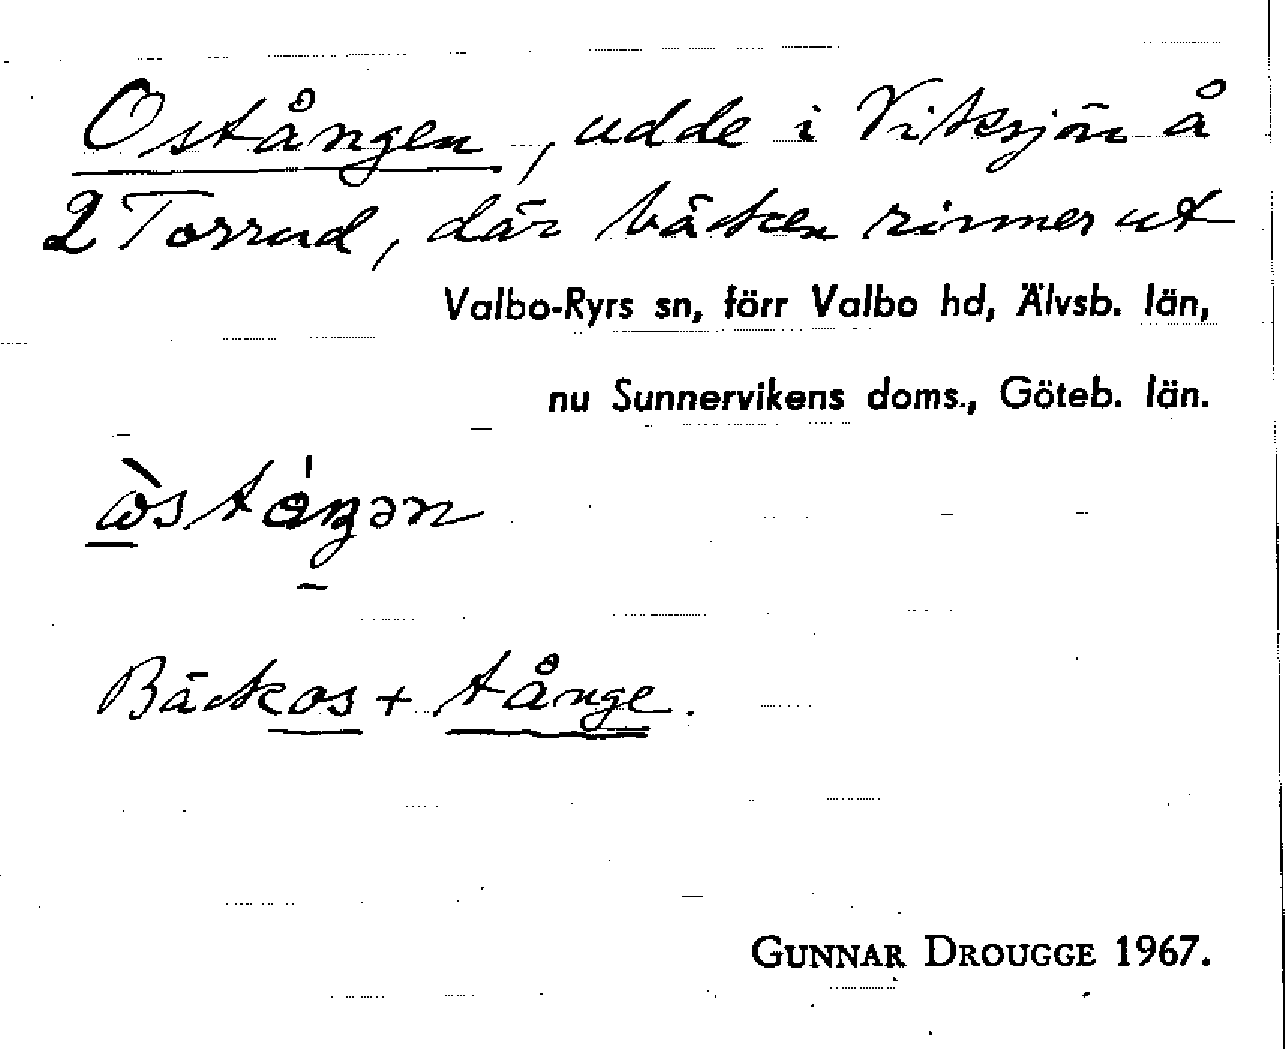 Ostången, udde i Viksjön å
2 Torrud, där bäcken rinner ut
Valbo-Ryrs sn, förr Valbo hd, Älvsb. län,
nu Sunnervikens doms., Göteb. län.
Bäckos + tånge.
GUNNAR DROUGGE 1967.